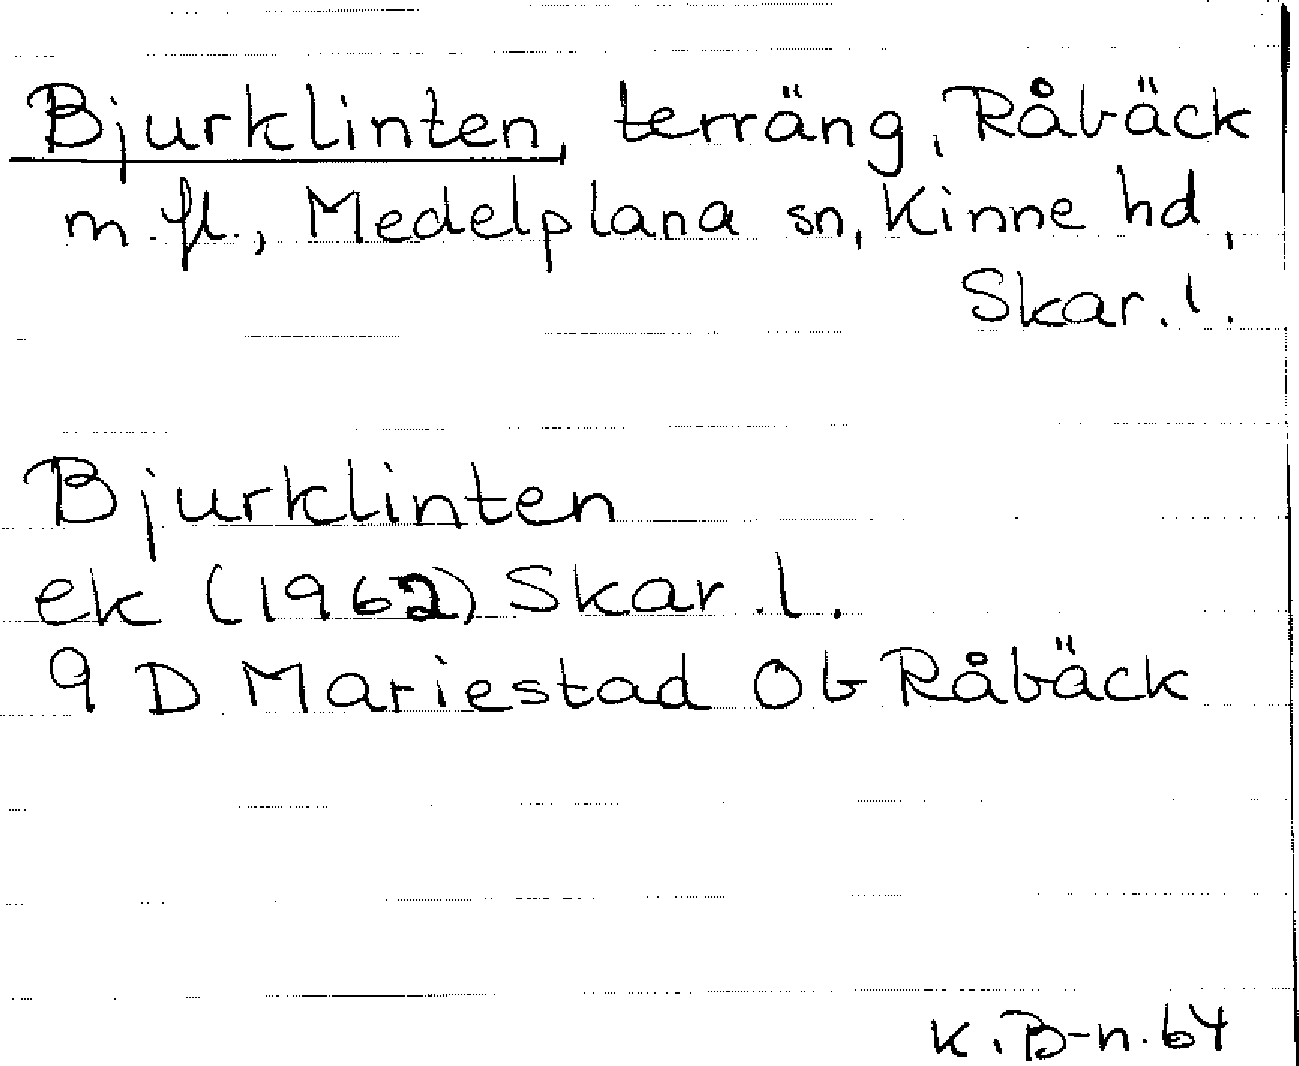 Bjurklinten, terräng, Råbäck
m.fl., Medelplana sn, Kinne hd,
Skar.l.
Bjurklinten
ek (1962) Skar.l.
9 D Mariestad Ob Råbäck
K.B-n.64